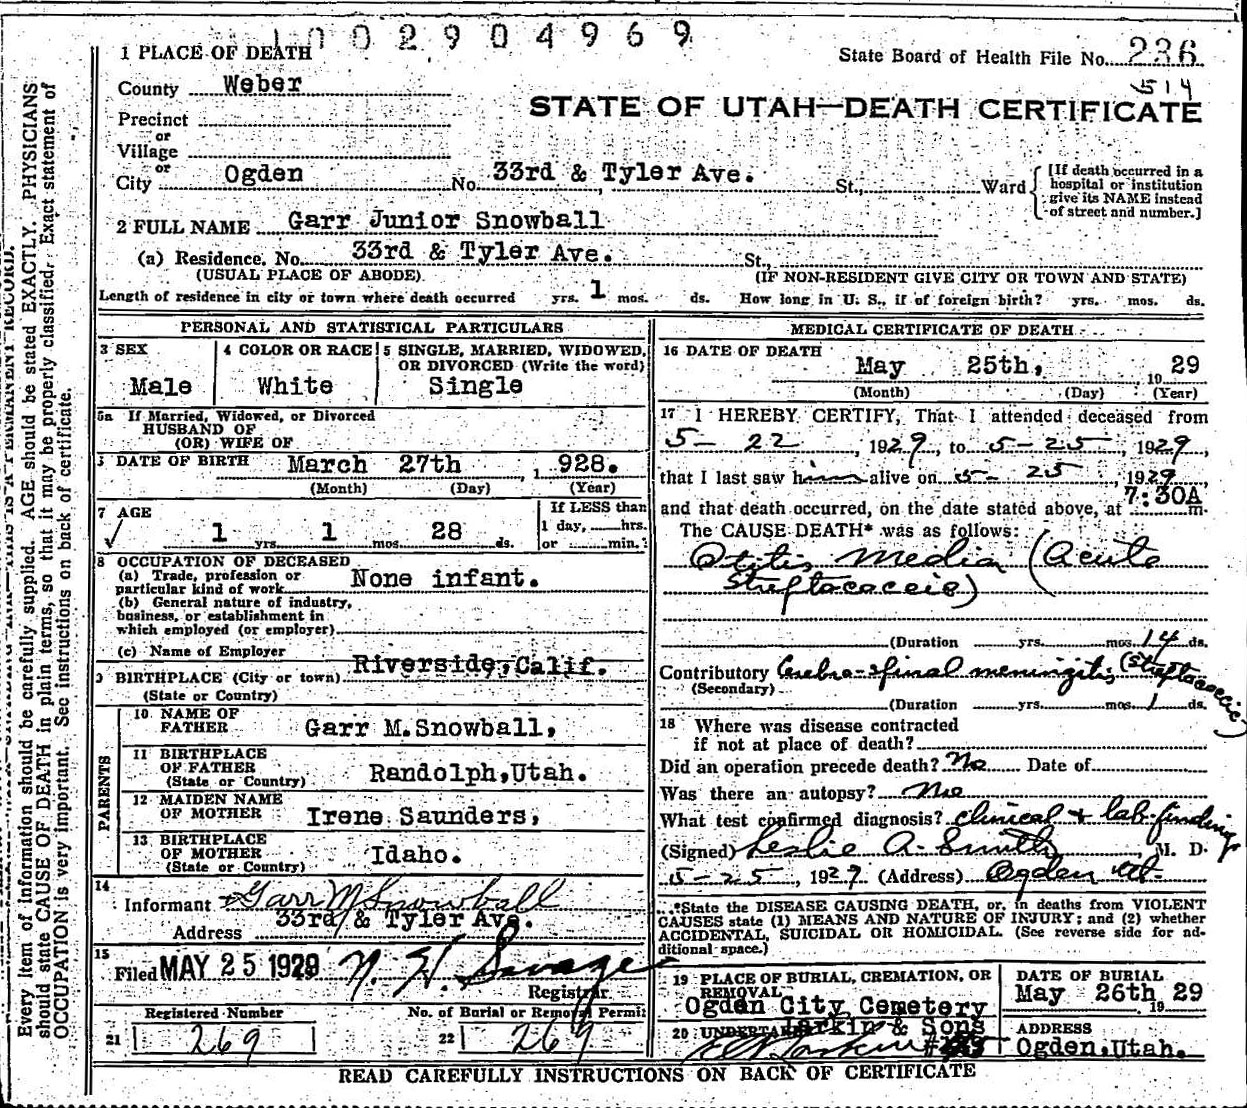 1002904969
State Board of Health File No. 236
514
1 PLACE OF DEATH
County Weber
STATE OF UTAH—DEATH CERTIFICATE
Precinct
or
Village
or
City Ogden No. 33rd & Tyler Ave. St., Ward
[If death occurred in a
hospital or institution
give its NAME instead
of street and number.]
2 FULL NAME Garr Junior Snowball
(a) Residence. No. 33rd & Tyler Ave. St.,
(USUAL PLACE OF ABODE) (IF NON-RESIDENT GIVE CITY OR TOWN AND STATE)
Length of residence in city or town where death occurred yrs. 1 mos. ds. How long in U. S., if of foreign birth? yrs. mos. ds.
PERSONAL AND STATISTICAL PARTICULARS
3 SEX
Male
4 COLOR OR RACE
White
5 SINGLE, MARRIED, WIDOWED,
OR DIVORCED (Write the word)
Single
5a If Married, Widowed, or Divorced
HUSBAND OF
(OR) WIFE OF
DATE OF BIRTH March 27th 1 928.
(Month) (Day) (Year)
7 AGE
✓ 1 yrs. 1 mos. 28 ds.
If LESS than
1 day, hrs.
or min.?
8 OCCUPATION OF DECEASED
(a) Trade, profession or
particular kind of work None infant.
(b) General nature of industry,
business, or establishment in
which employed (or employer)
(c) Name of Employer
9 BIRTHPLACE (City or town) Riverside, Calif.
(State or Country)
PARENTS
10 NAME OF
FATHER Garr M. Snowball,
11 BIRTHPLACE
OF FATHER
(State or Country) Randolph, Utah.
12 MAIDEN NAME
OF MOTHER Irene Saunders,
13 BIRTHPLACE
OF MOTHER
(State or Country) Idaho.
14
Informant Garr M Snowball
Address 33rd & Tyler Ave.
15
Filed MAY 25 1929 N. H. Savage
Registrar
Registered Number
21 269
No. of Burial or Removal Permit
22 269
MEDICAL CERTIFICATE OF DEATH
16 DATE OF DEATH
May 25th, 19 29
(Month) (Day) (Year)
17 I HEREBY CERTIFY, That I attended deceased from
5- 22, 1929, to 5-25, 1929,
that I last saw him alive on 5- 25, 1929
and that death occurred, on the date stated above, at 7:30A m.
The CAUSE DEATH* was as follows:
Otitis Media (Acute
Streptococcic)
(Duration yrs. mos. 14 ds.
Contributory Cerebro-spinal meningitis (Streptococcic)
(Secondary)
(Duration yrs. mos. 1 ds.
18 Where was disease contracted
if not at place of death?
Did an operation precede death? No Date of
Was there an autopsy? No
What test confirmed diagnosis? clinical & lab. findings
(Signed) Leslie A. Smith, M. D.
5-25, 1929 (Address) Ogden Ut.
*State the DISEASE CAUSING DEATH, or, in deaths from VIOLENT
CAUSES state (1) MEANS AND NATURE OF INJURY; and (2) whether
ACCIDENTAL, SUICIDAL OR HOMICIDAL. (See reverse side for ad-
ditional space.)
19 PLACE OF BURIAL, CREMATION, OR
REMOVAL
Ogden City Cemetery
DATE OF BURIAL
May 26th 19 29
20 UNDERTAKER Larkin & Sons
ADDRESS
Ogden, Utah.
READ CAREFULLY INSTRUCTIONS ON BACK OF CERTIFICATE
Every item of information should be carefully supplied. AGE should be stated EXACTLY. PHYSICIANS
should state CAUSE OF DEATH in plain terms, so that it may be properly classified. Exact statement of
OCCUPATION is very important. See instructions on back of certificate.